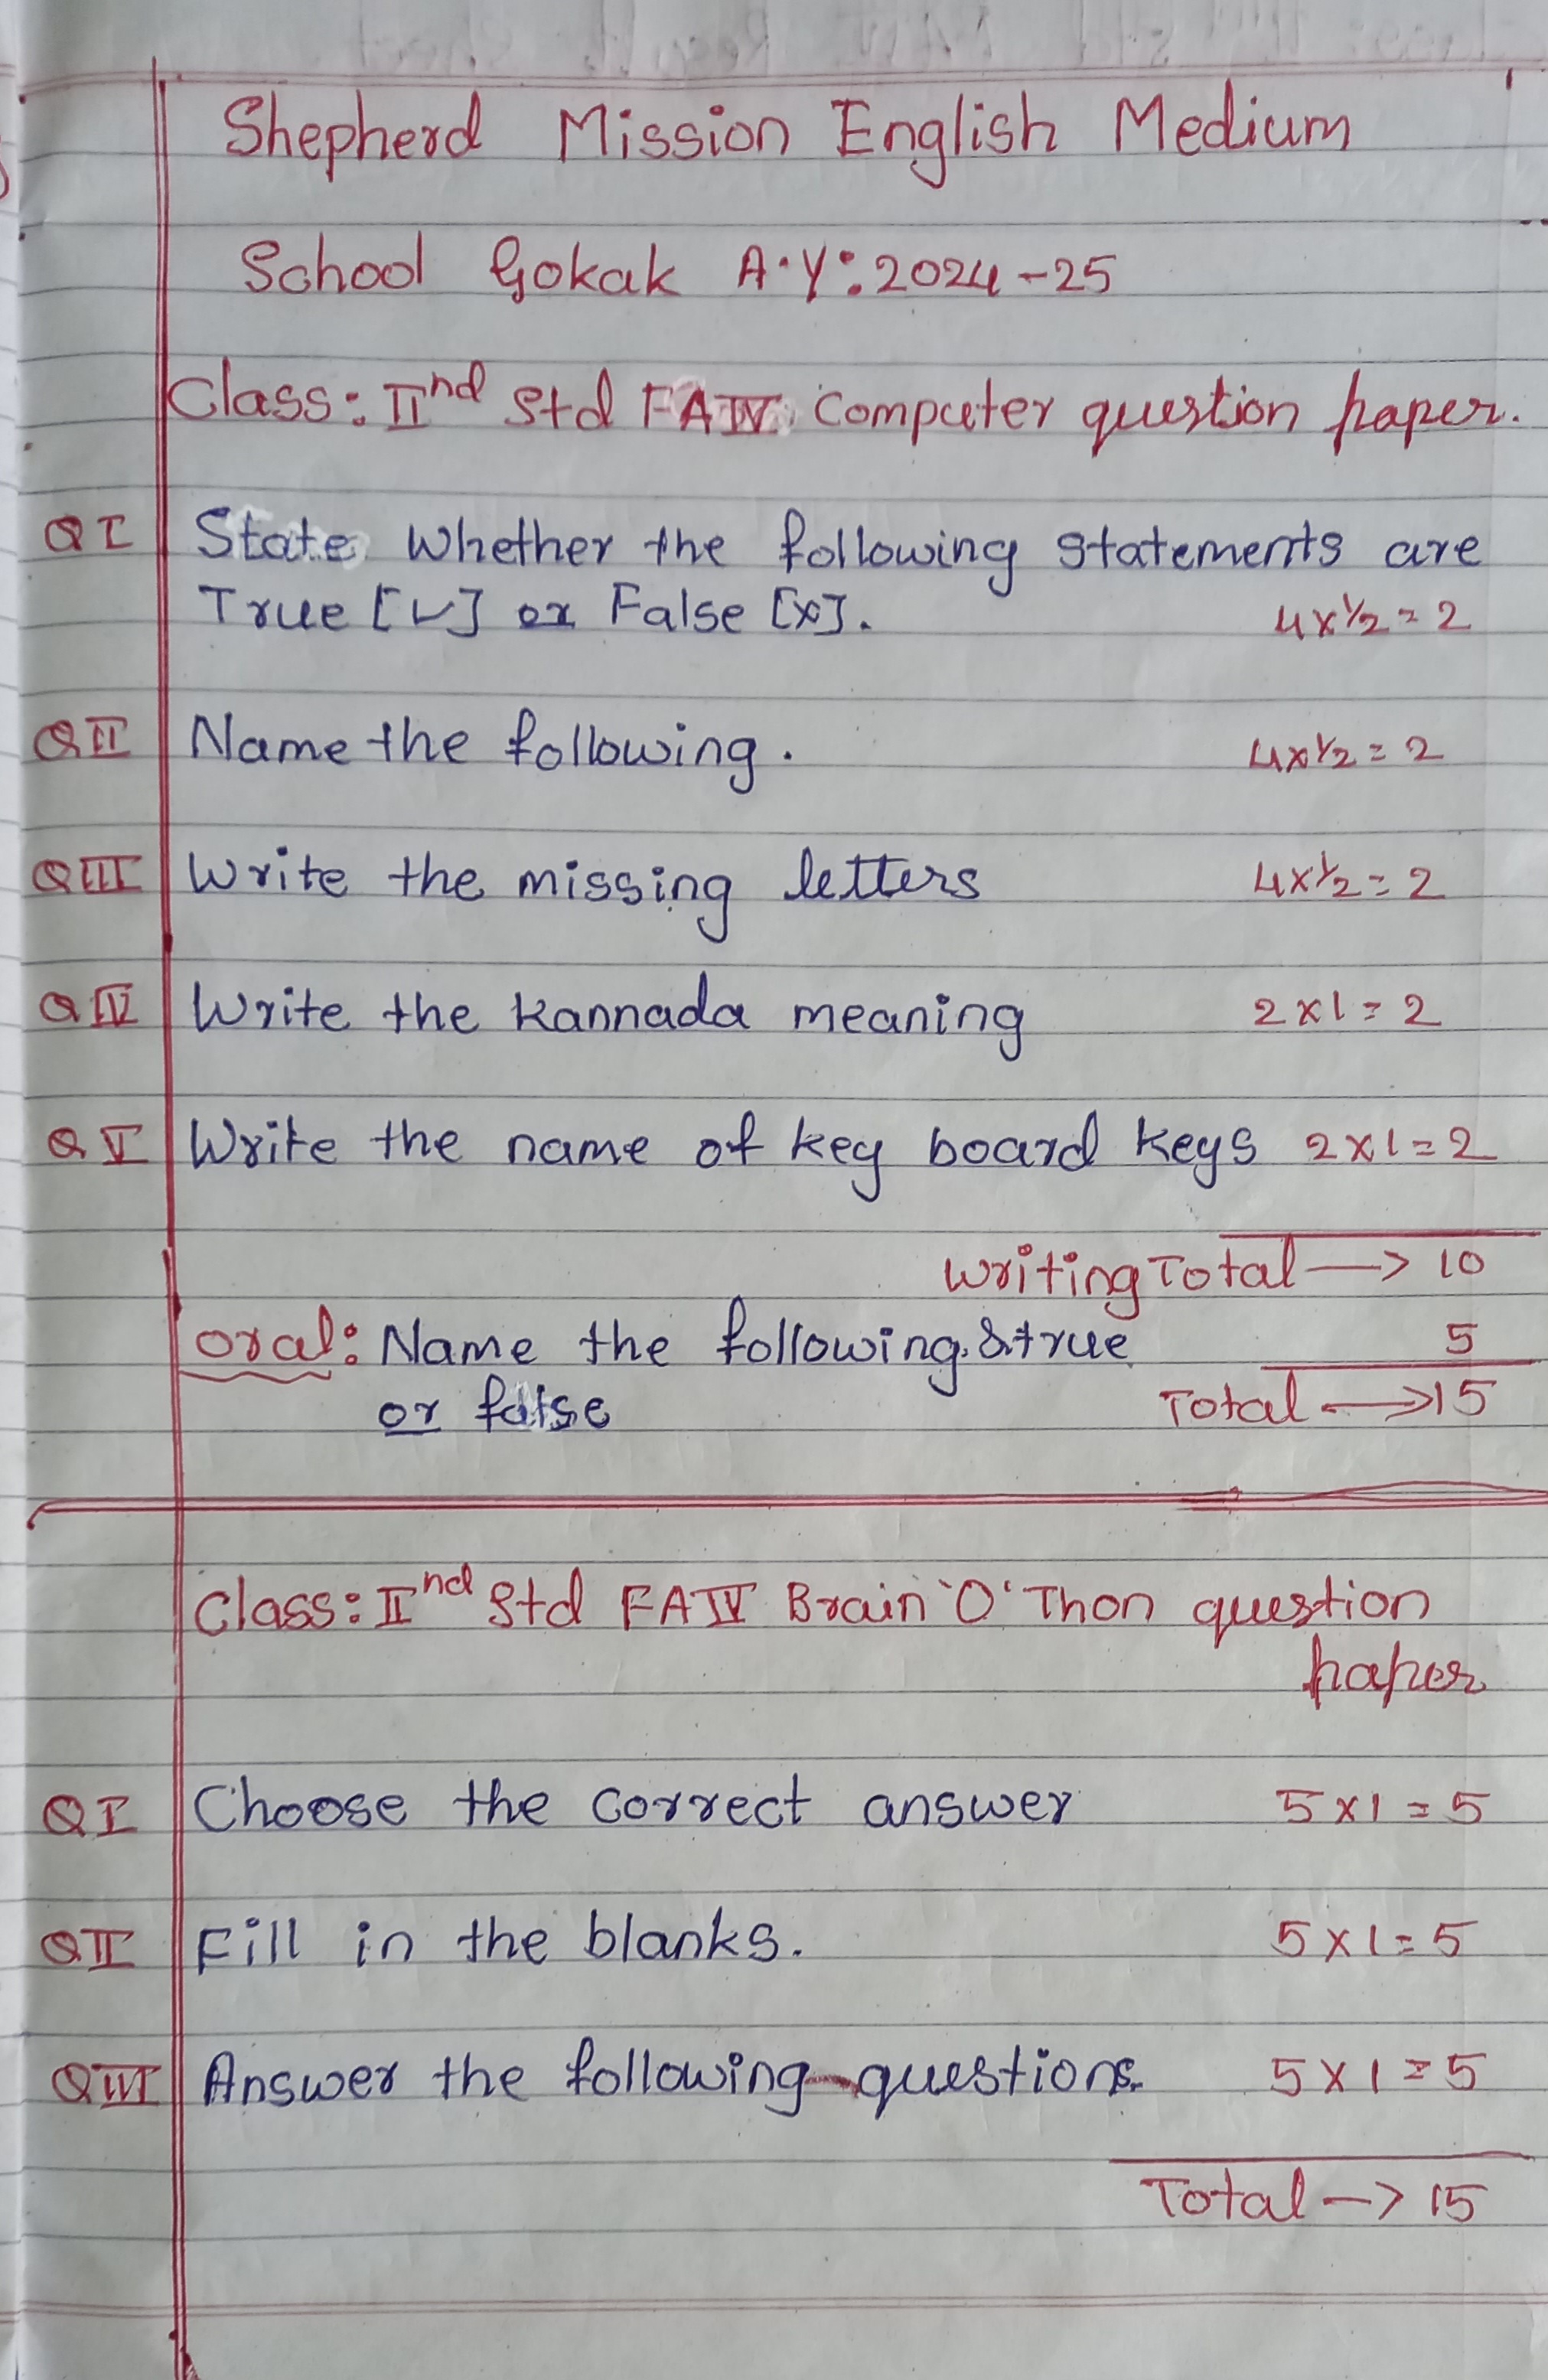 Shepherd Mission English Medium
School Gokak A.Y: 2024-25
Class: IInd Std FA IV Computer question paper.
Q I State Whether the following statements are
True [✓] or False [x]. 4x½=2
Q II Name the following. 4x½=2
Q III Write the missing letters 4x½=2
Q IV Write the Kannada meaning 2x1=2
Q V Write the name of key board keys 2x1=2
Writing Total → 10
Oral: Name the following. & true 5
or false Total → 15
Class: IInd Std FA IV Brain 'O' Thon question
paper
Q I Choose the correct answer 5x1=5
Q II Fill in the blanks. 5x1=5
Q III Answer the following questions. 5x1=5
Total → 15